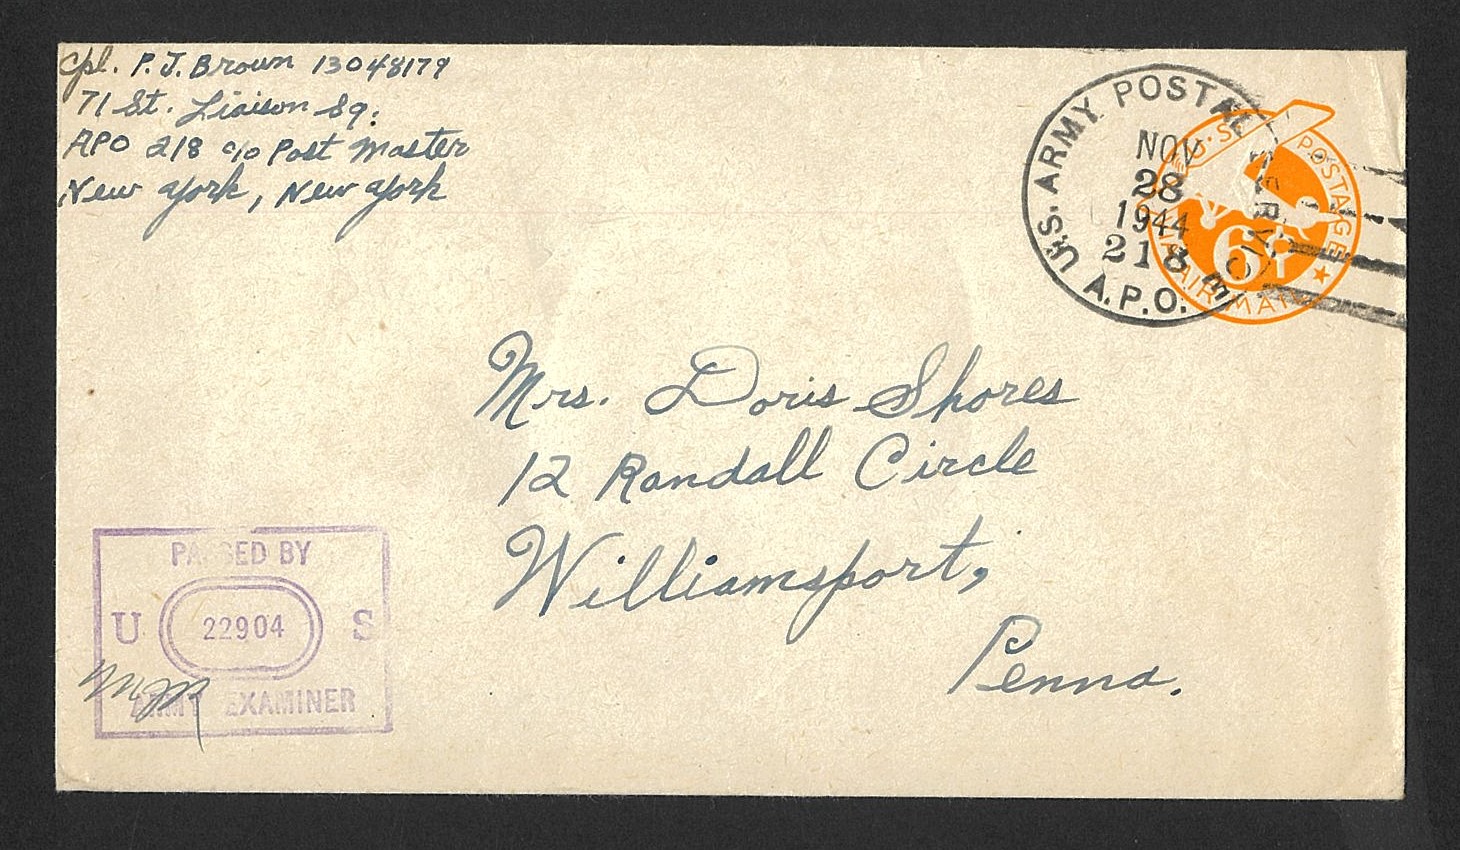 Cpl. P. J. Brown 13048179
71 St. Liaison Sq.
APO 218 c/o Post Master
New York, New York
U.S. ARMY POSTAL SERVICE
NOV
28
1944
218
A.P.O.
U.S. POSTAGE
6¢
AIR MAIL
Mrs. Doris Shores
12 Randall Circle
Williamsport,
Penna.
PASSED BY
U 22904 S
ARMY EXAMINER